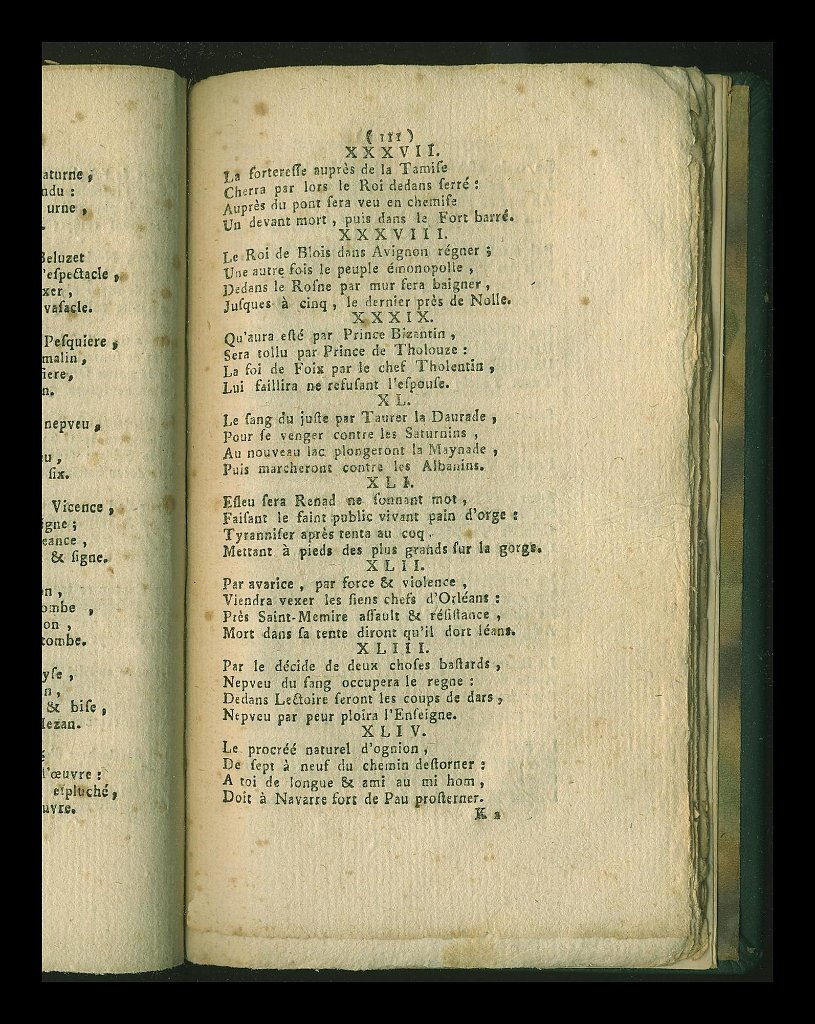 aturne,
ndu :
urne,
Beluzet
'eſpectacle,
xer,
vaſacle.
Peſquiere,
malin,
iere,
n.
nepveu,
u,
ſix.
Vicence,
igne ;
eance,
& ſigne.
on,
ombe ,
on ,
combe.
yſe ,
n,
& biſe,
lezan.
é
l'œuvre :
eſpluché,
uvre.
( 111 )
XXXVII.
La fortereſſe auprès de la Tamiſe
Cherra par lors le Roi dedans ſerré :
Auprès du pont ſera veu en chemiſe
Un devant mort , puis dans le Fort barré.
XXXVIII.
Le Roi de Blois dans Avignon régner ;
Une autre fois le peuple émonopolle ,
Dedans le Roſne par mur ſera baigner ,
Juſques à cinq , le dernier près de Nolle.
XXXIX.
Qu'aura eſté par Prince Bizantin ,
Sera tollu par Prince de Tholouze :
La foi de Foix par le chef Tholentin ,
Lui faillira ne refuſant l'eſpouſe.
XL.
Le ſang du juſte par Taurer la Daurade ,
Pour ſe venger contre les Saturnins ,
Au nouveau lac plongeront la Maynade ,
Puis marcheront contre les Albanins.
XLI.
Eſleu ſera Renad ne ſonnant mot ,
Faiſant le faint public vivant pain d'orge :
Tyranniſer après tenta au coq ,
Mettant à pieds des plus grands ſur la gorge.
XLII.
Par avarice , par force & violence ,
Viendra vexer les ſiens chefs d'Orléans :
Près Saint-Memire aſſault & réſiſtance ,
Mort dans ſa tente diront qu'il dort léans.
XLIII.
Par le décide de deux choſes baſtards ,
Nepveu du ſang occupera le regne :
Dedans Lectoire ſeront les coups de dars ,
Nepveu par peur ploira l'Enſeigne.
XLIV.
Le procréé naturel d'ognion ,
De ſept à neuf du chemin deſtorner :
A toi de longue & ami au mi hom ,
Doit à Navarre fort de Pau proſterner.
K 2